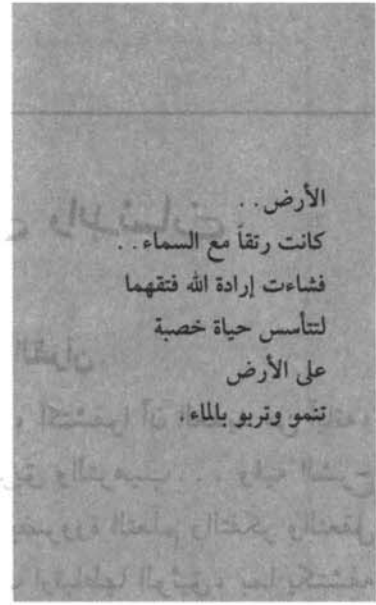 الأرض..
كانت رتقاً مع السماء..
فشاءت إرادة الله فتقهما
لتتأسس حياة خصبة
على الأرض
تنمو وتربو بالماء.